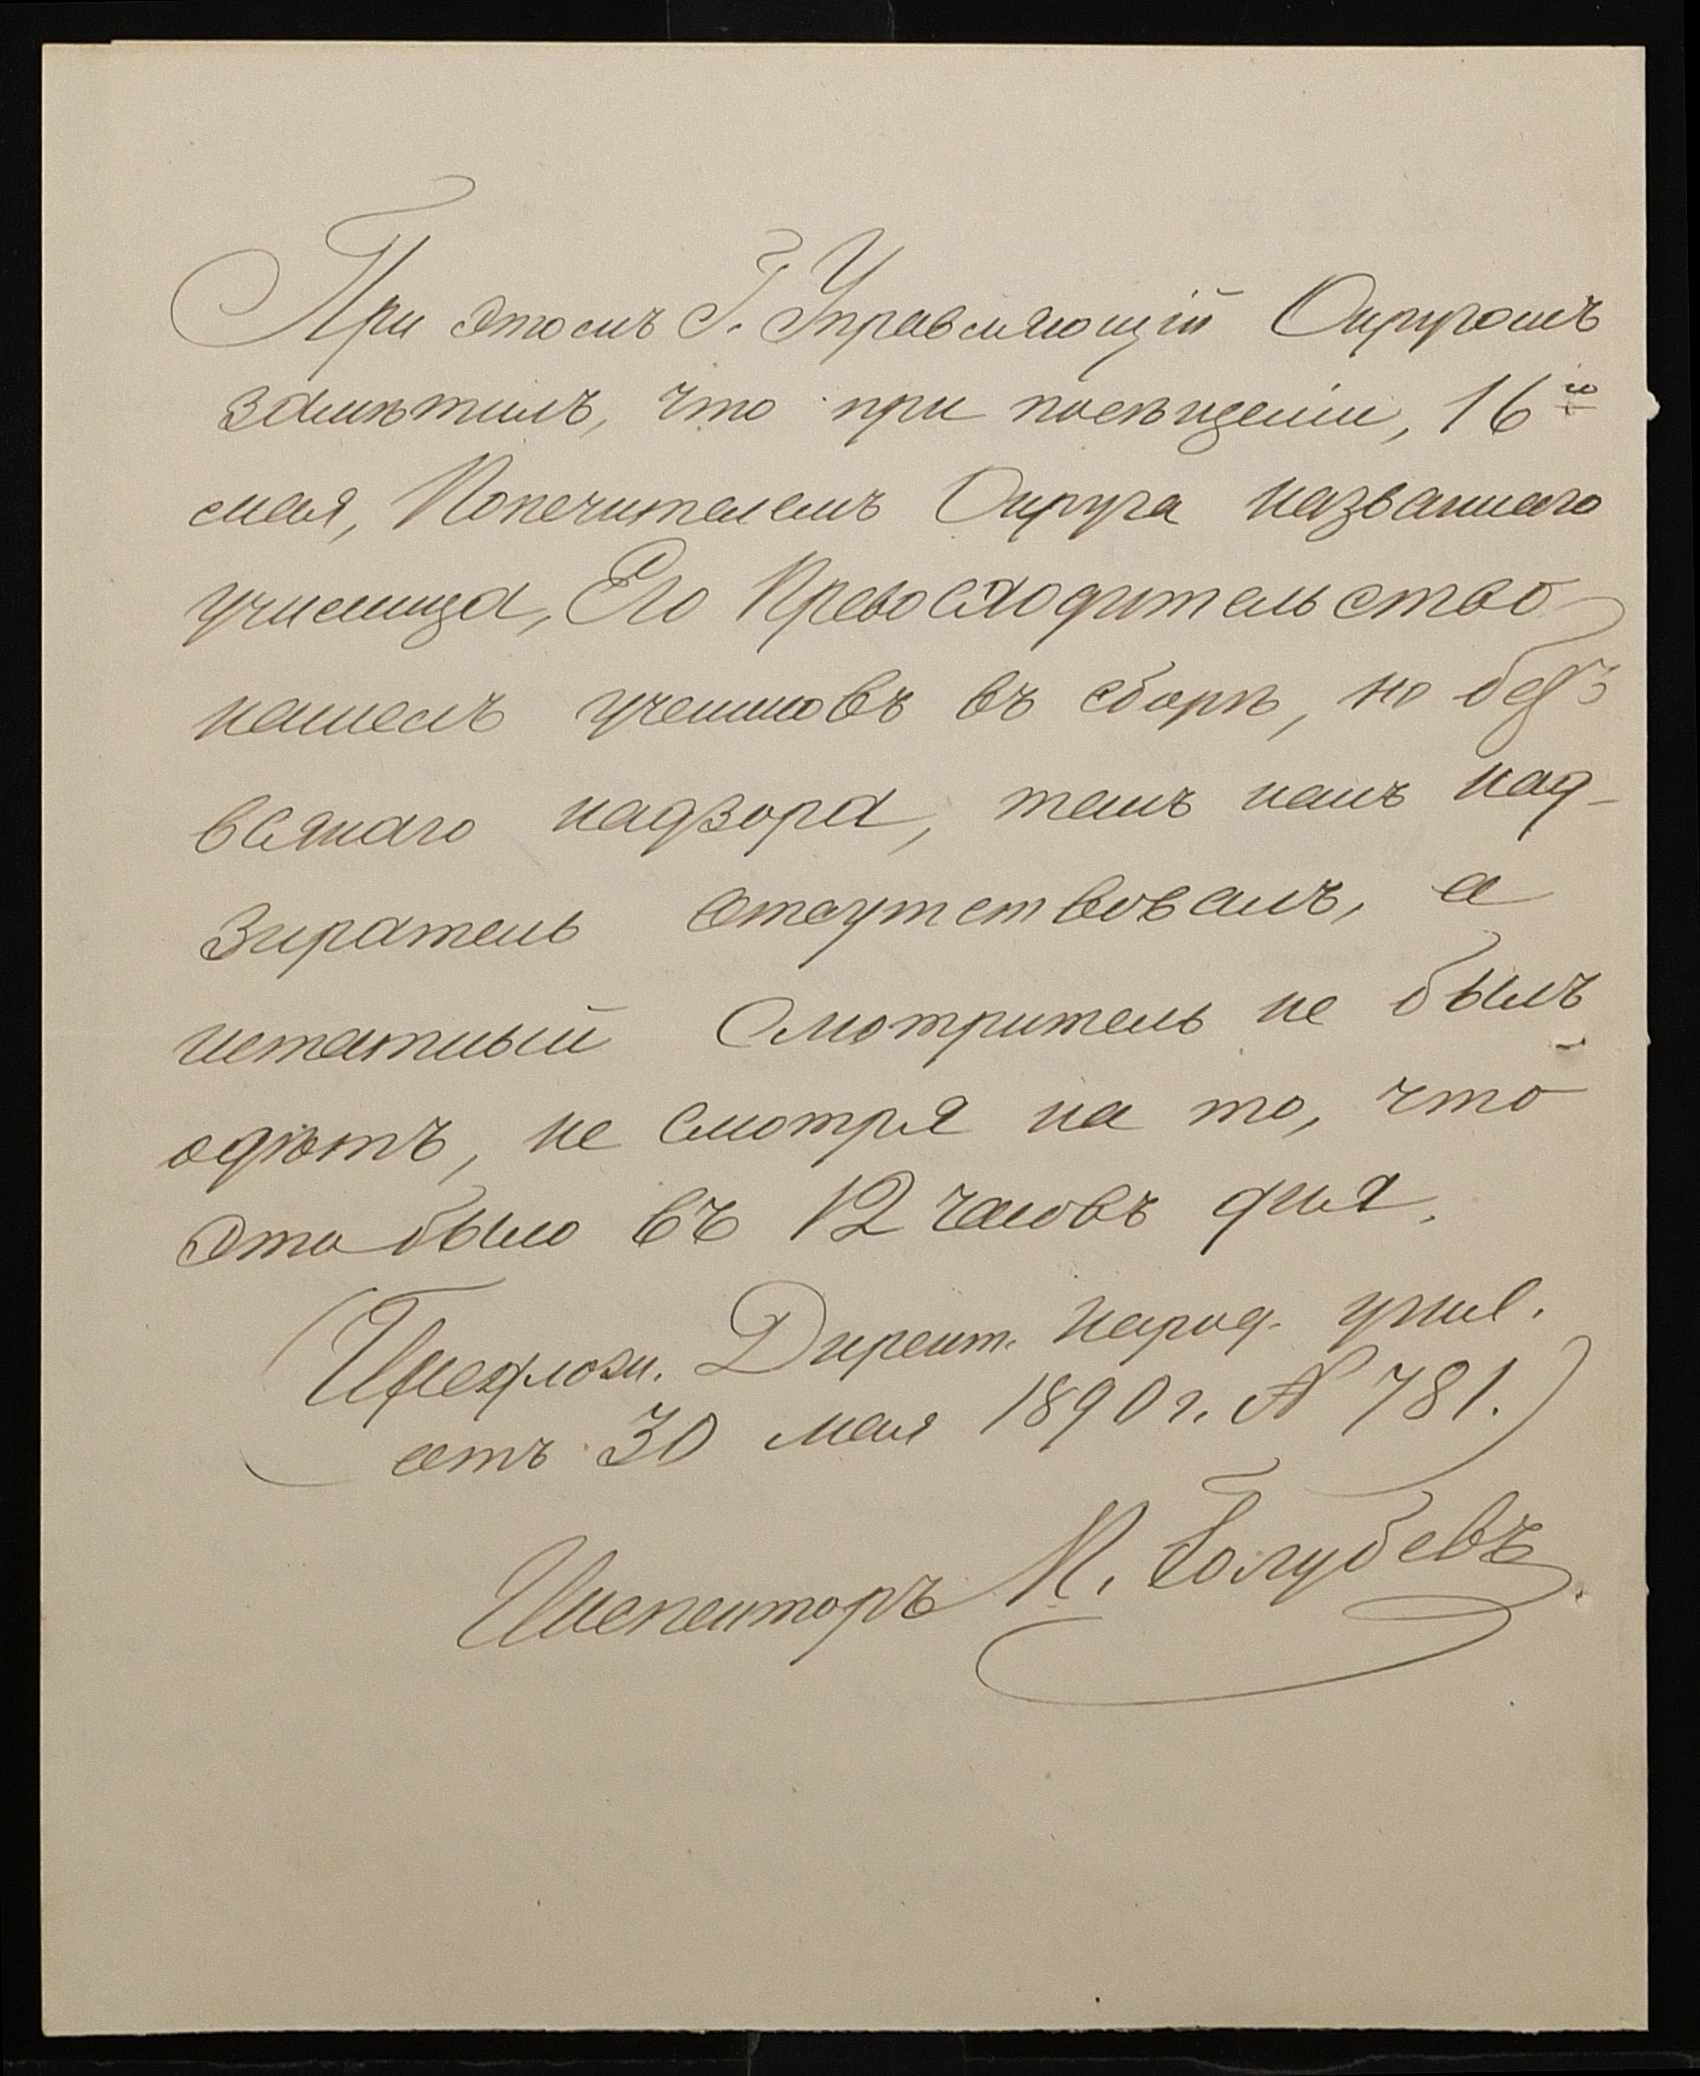 При этомъ Г. Управляющій Округомъ
замѣтилъ, что при посѣщеніи, 16го
мая, Попечителемъ Округа названнаго
училища, Его Превосходительство
нашелъ учениковъ въ сборѣ, но безъ
всякаго надзора, такъ какъ над-
зиратель отсутствовалъ, а
штатный смотритель не былъ
одѣтъ, не смотря на то, что
это было въ 12 часовъ дня.
(Предлож. Директ. народ. учил.
отъ 30 мая 1890 г. № 781.)
Инспекторъ К. Голубевъ